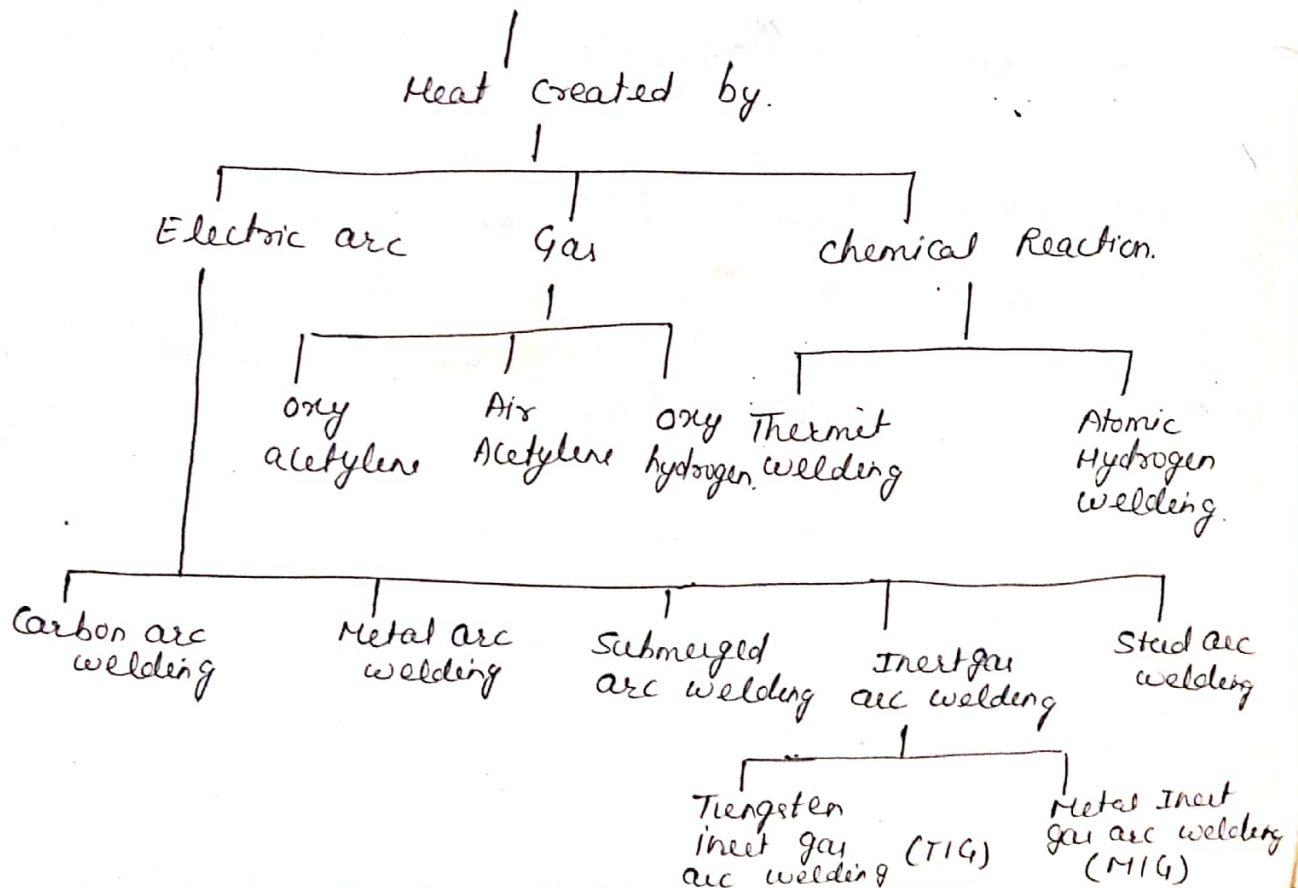 Heat created by.
Electric arc
Gas
Chemical Reaction.
Oxy
acetylene
Air
Acetylene
Oxy
hydrogen.
Thermit
welding
Atomic
Hydrogen
welding.
Carbon arc
welding
Metal arc
welding
Submerged
arc welding
Inert gas
arc welding
Stud arc
welding
Tungsten
inert gas
arc welding (TIG)
Metal Inert
gas arc welding
(MIG)